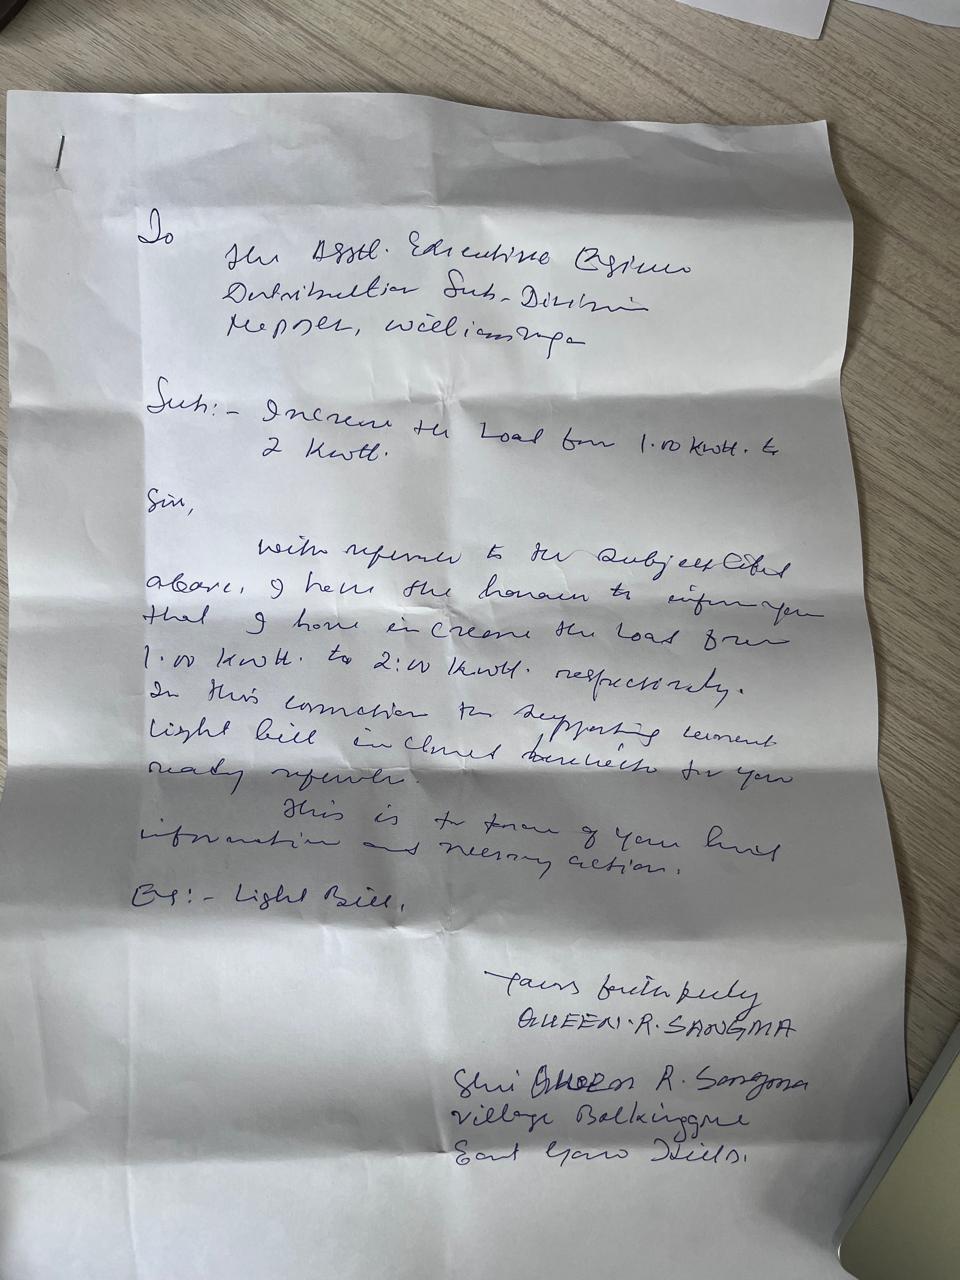 To
The Asstt. Executive Engineer
Distribution Sub-Division
Mepdcl, Williamnagar
Sub:- Increase the Load from 1.00 KWtt. to
2 KWtt.
Sir,
With reference to the subject cited
above, I have the honour to inform you
that I have increase the Load from
1.00 KWtt. to 2:00 KWtt. respectively.
In this connection the supporting
Light bill inclosed herewith for your
ready reference
This is for favour of your kind
information and necessary action.
En:- Light Bill.
Yours faithfully
QUEEN.R.SANGMA
Shri Queen R. Sangma
Village Bolkinggre
East Garo Hills.